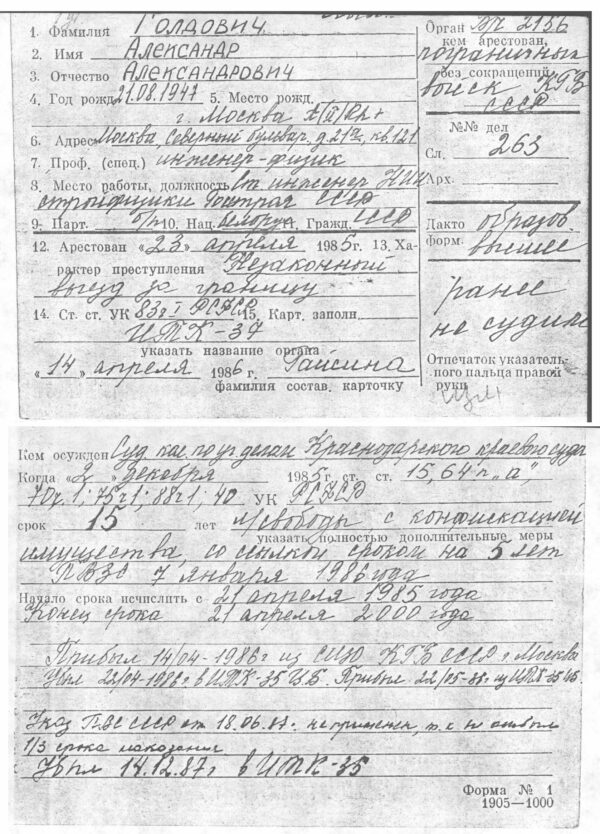 1. Фамилия Голдович
2. Имя Александр
3. Отчество Александрович
4. Год рожд. 21.08.1947 5. Место рожд.
г. Москва
6. Адрес Москва, Северный бульвар, д. 21а, кв. 121
7. Проф. (спец.) инженер-физик
8. Место работы, должность инженер НИИ
стройфизики Госстроя СССР
9. Парт. б/п 10. Нац. 11. Гражд. СССР
12. Арестован «23» апреля 1985г. 13. Ха-
рактер преступления Незаконный
выезд за границу
14. Ст. ст. УК 83 ч I РСФСР 15. Карт. заполн.
ИТК-37
указать название органа
«14» апреля 1986 г. Гайсина
фамилия состав. карточку
Орган в/ч 2156
кем арестован,
пограничных
без сокращений
войск КГБ
СССР
№№ дел
Сл. 263
Арх.
Дакто образов.
форм. высшее
ранее
не судим
Отпечаток указатель-
ного пальца правой
руки
Кем осужден Суд кол. по уг. делам Краснодарского краевого суда
Когда «2» декабря 1985г. ст. ст. 15, 64 п. „а",
70 ч. 1; 75 ч 1; 88 ч 1; 40 УК РСФСР
срок 15 лет л/свободы с конфискацией
указать полностью дополнительные меры
имущества, со ссылкой сроком на 5 лет
7 января 1986 года
Начало срока исчислить с 21 апреля 1985 года
Конец срока 21 апреля 2000 года
Прибыл 14/04-1986г из СИЗО КГБ СССР г. Москва
Убыл 22/04-1986г в ИТК-35 Прибыл 22/05- из ИТК-35
Указ ПВС СССР от 18.06.87г. не применен, т.к. не отбыл
1/3 срока наказания
Убыл 14.12.87г в ИТК-35
Форма № 1
1905—1000